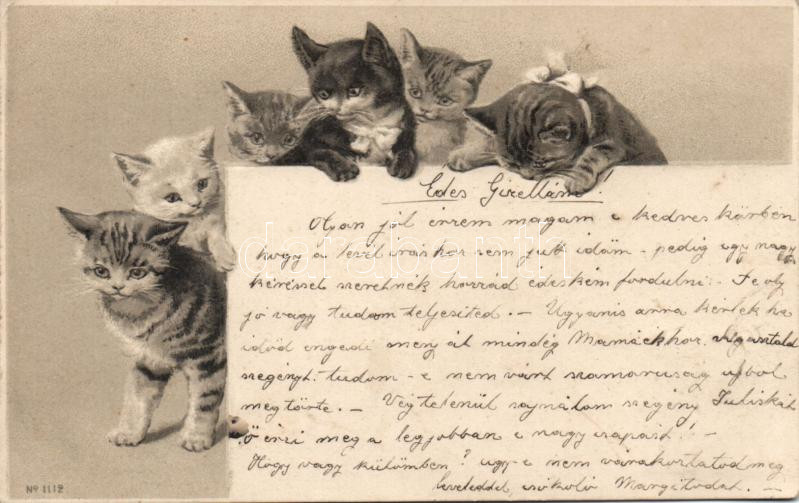 Édes Gizellám!
Olyan jól érzem magam e kedves körben
hogy a levél íráskor sem jutt időm - pedig egy nagy
kéréssel szeretnék hozzád édeském fordulni. - Te oly
jó vagy tudom teljesited. - Ugyanis arra kérlek ha
időd engedi menj át mindég Mamáékhoz, vigasztald
szegényt. tudom - e nem várt szamaruság ujból
megtörte. - Végtelenül sajnálom szegény Juliskát
ő érzi meg a legjobban e nagy csapást! -
Hogy vagy külömben? ugy-e nem várakoztatod meg
leveleddel, csókoló Margitodat. -
No 1112
darabanth